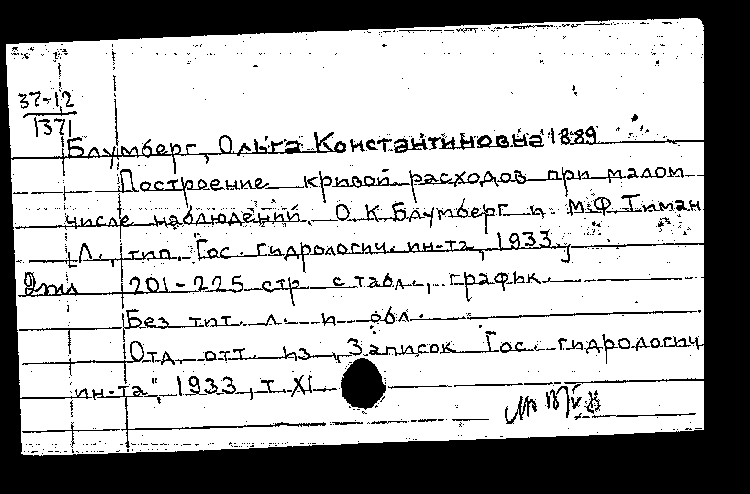 37-12
1371
Блумберг, Ольга Константиновна 1889
Построение кривой расходов при малом
числе наблюдений. О.К. Блумберг и М.Ф. Тиман
Л., тип. Гос. гидрологич. ин-та, 1933.
201-225 стр. с табл., график.
Без тит. л. и обл.
Отд. отт. из „Записок Гос. гидрологич
ин-та", 1933, т. XI.